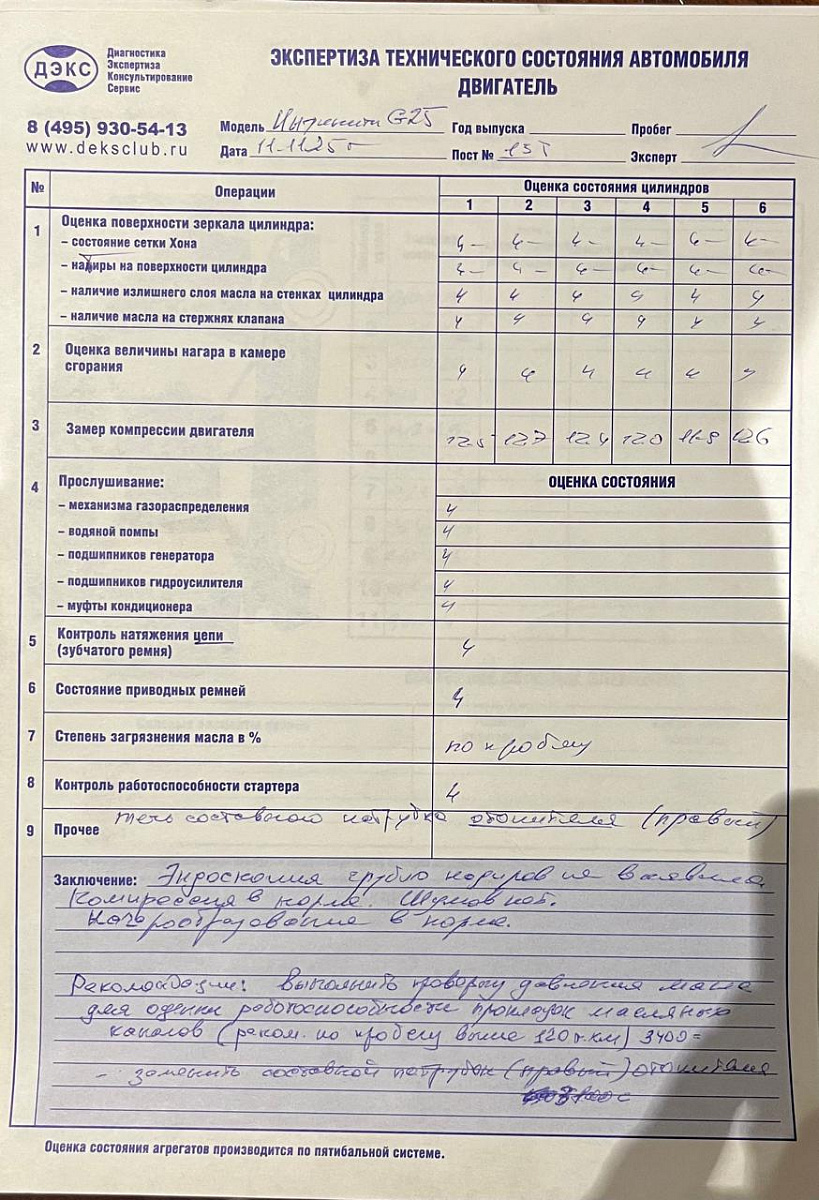 ДЭКС
Диагностика
Экспертиза
Консультирование
Сервис
ЭКСПЕРТИЗА ТЕХНИЧЕСКОГО СОСТОЯНИЯ АВТОМОБИЛЯ
ДВИГАТЕЛЬ
8 (495) 930-54-13
www.deksclub.ru
Модель Инфинити G25 Год выпуска Пробег
Дата 11.11.25г Пост № 15Т Эксперт
№ Операции Оценка состояния цилиндров
1 2 3 4 5 6
1 Оценка поверхности зеркала цилиндра:
– состояние сетки Хона 4– 4– 4– 4– 4– 4–
– надиры на поверхности цилиндра 4– 4– 4– 4– 4– 4–
– наличие излишнего слоя масла на стенках цилиндра 4 4 4 4 4 4
– наличие масла на стержнях клапана 4 4 4 4 4 4
2 Оценка величины нагара в камере
сгорания 4 4 4 4 4 4
3 Замер компрессии двигателя 12.5 12.7 12.4 12.0 11.8 12.6
4 Прослушивание: ОЦЕНКА СОСТОЯНИЯ
– механизма газораспределения 4
– водяной помпы 4
– подшипников генератора 4
– подшипников гидроусилителя 4
– муфты кондиционера 4
5 Контроль натяжения цепи
(зубчатого ремня) 4
6 Состояние приводных ремней 4
7 Степень загрязнения масла в % по пробегу
8 Контроль работоспособности стартера 4
9 Прочее течь составного патрубка отопителя (правый)
Заключение: Эндоскопия грубых надиров не выявила
Компрессия в норме. Шумов нет.
Нагарообразование в норме.
Рекомендации: выполнить проверку давления масла
для оценки работоспособности прокладок масляных
каналов (реком. по пробегу выше 120 т.км) 3400=
- заменить составной патрубок (правый) отопителя
Оценка состояния агрегатов производится по пятибальной системе.